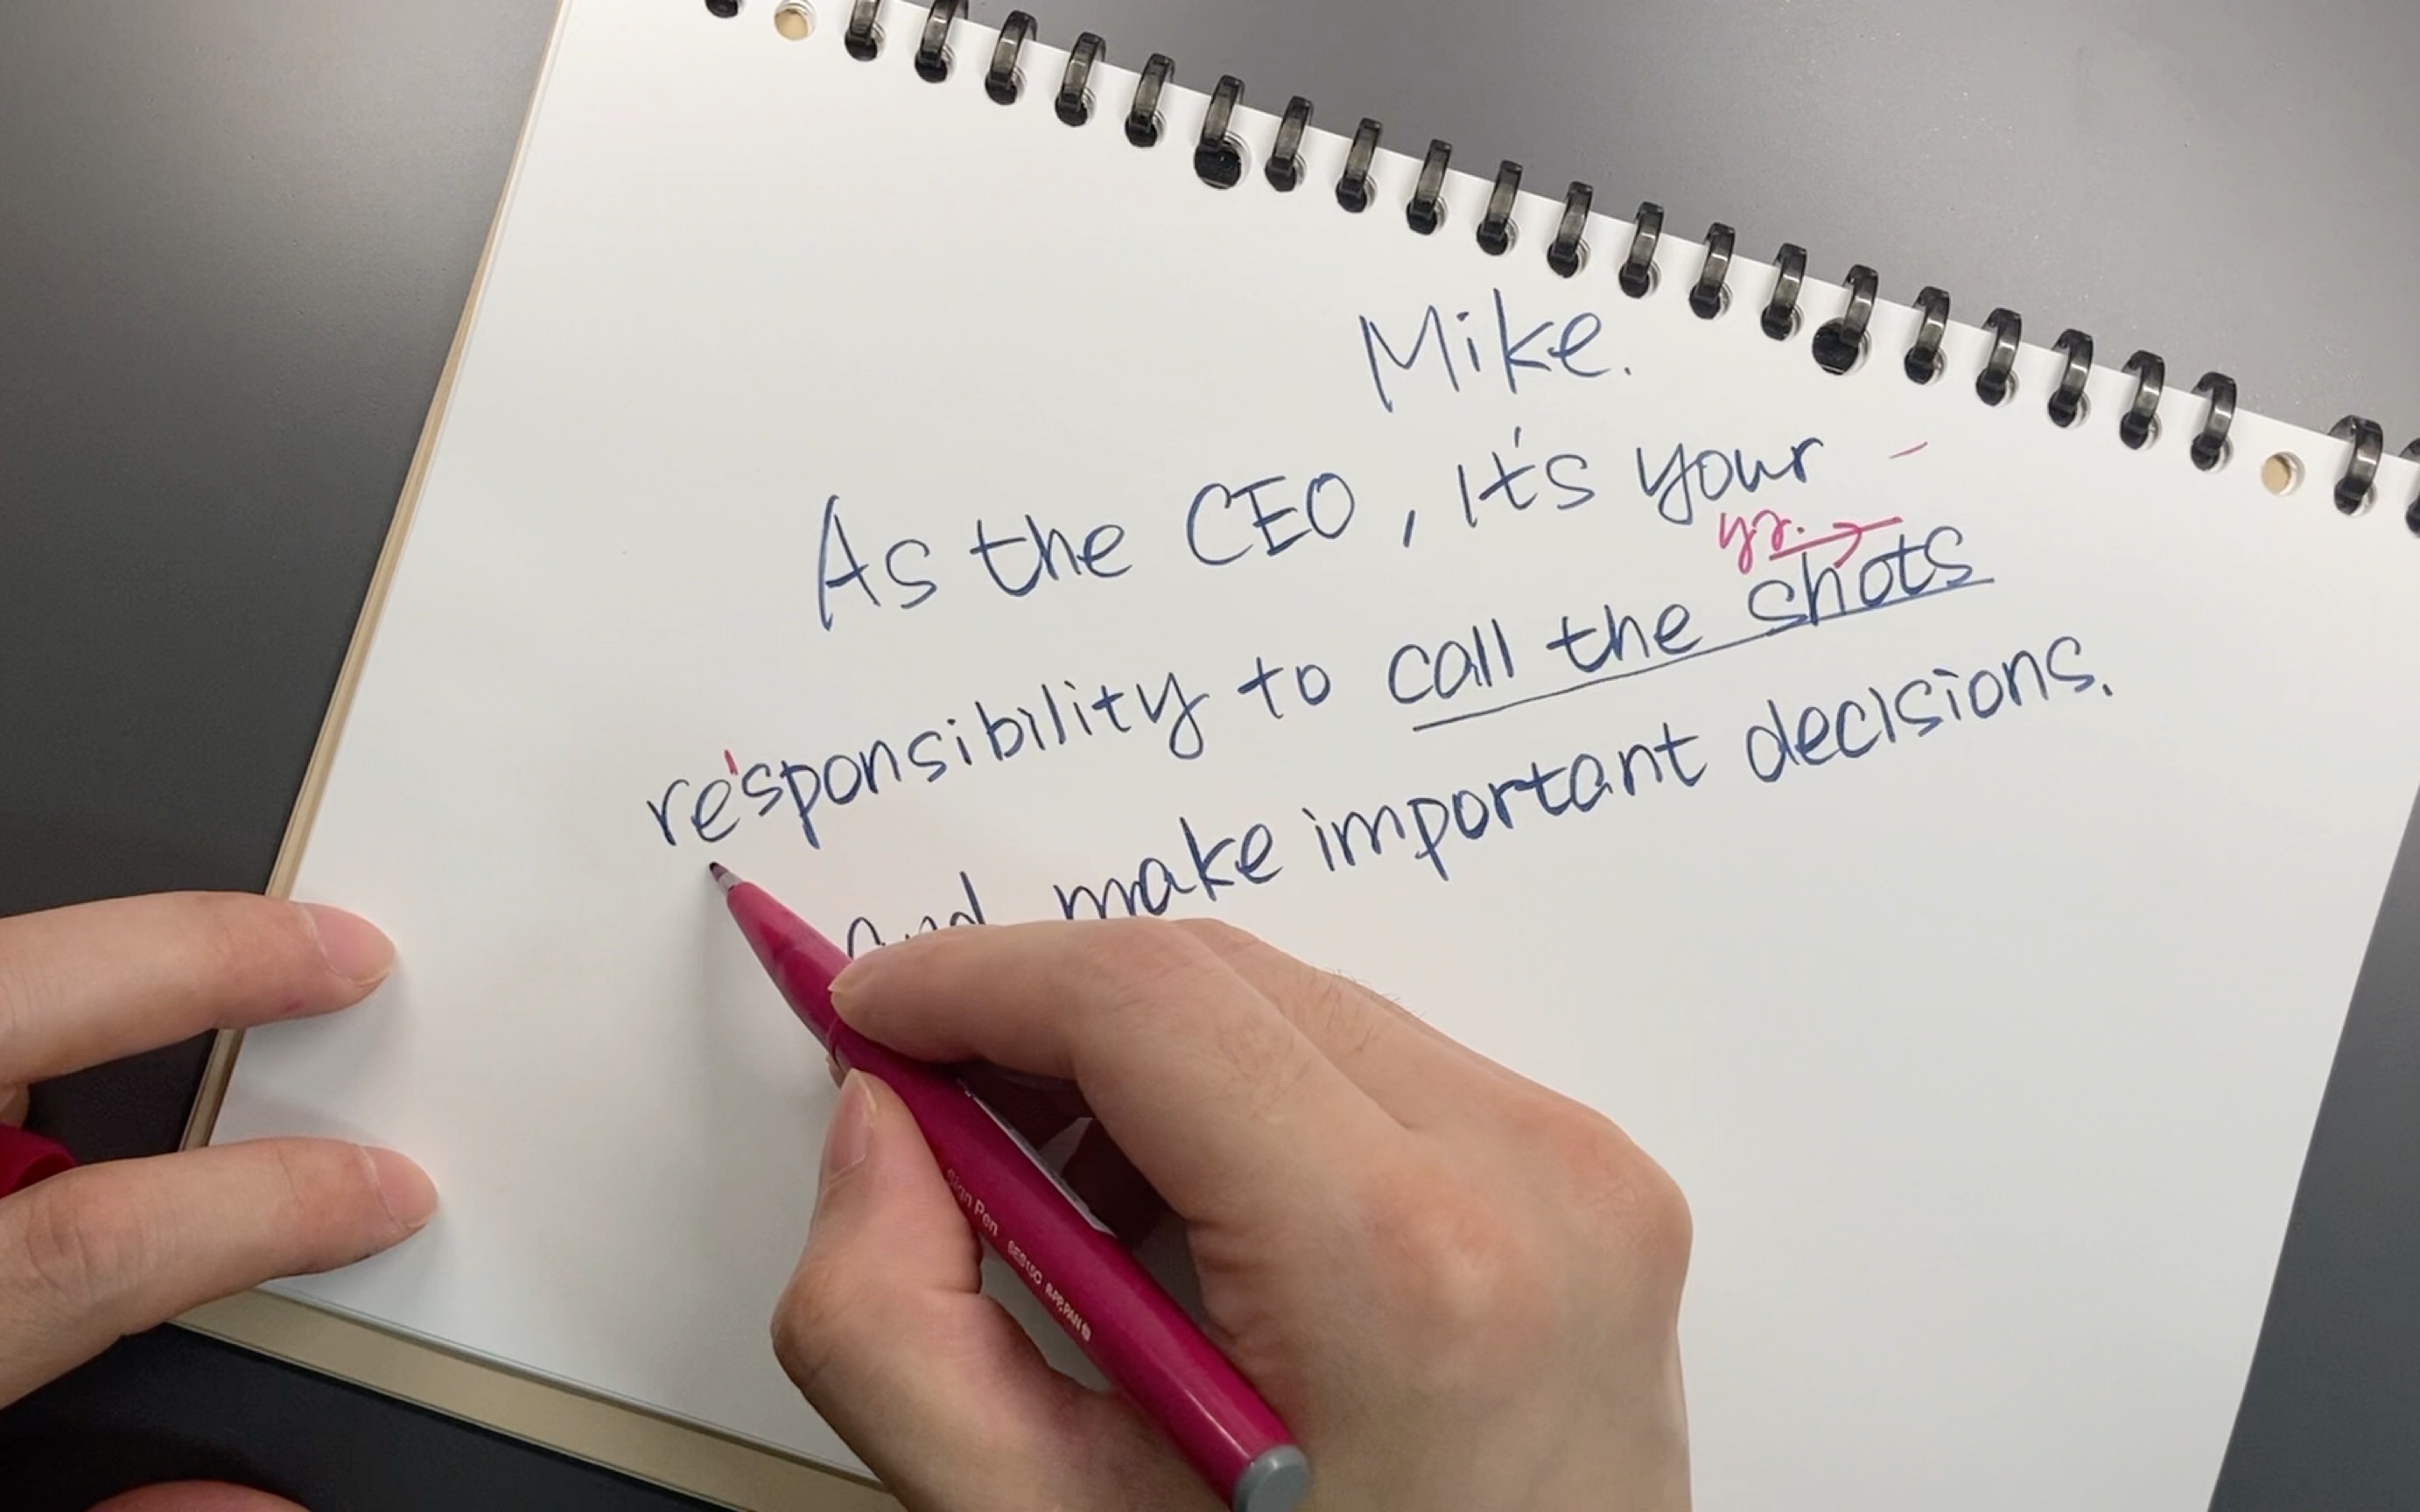 Mike.
As the CEO, it's your
yr.
responsibility to call the shots
and make important decisions.
Sign Pen